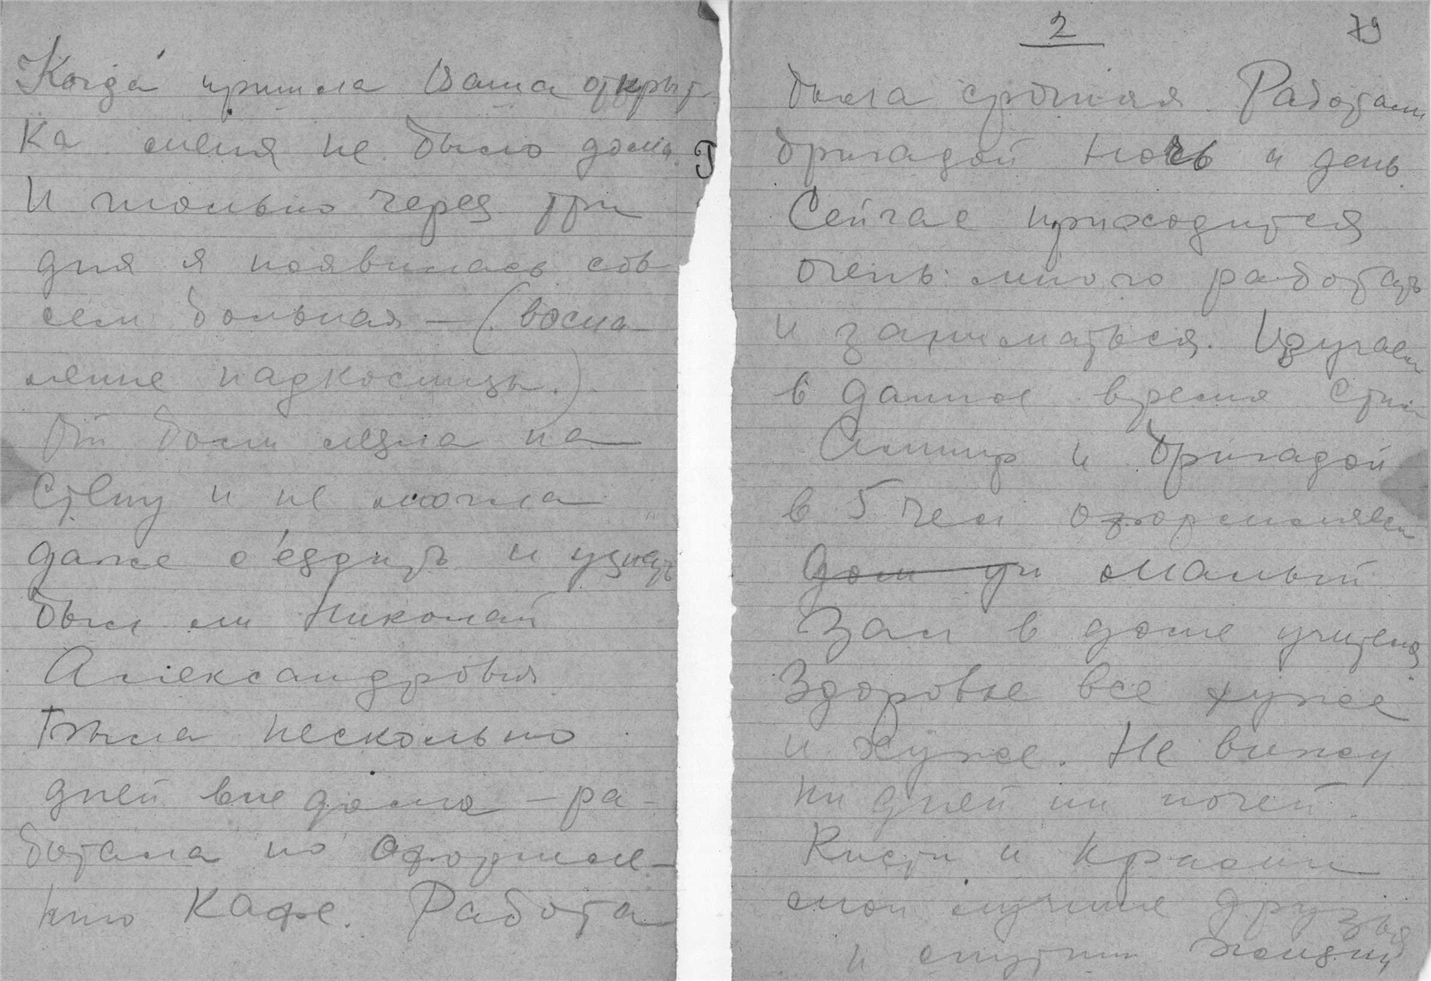 Когда пришла Ваша открыт
ка меня не было дома.
И только через три
дня я появилась сов
сем больная — (воспа
ление надкостницы.)
От боли лезла на
стену и не могла
даже с'ездить и узнать
был ли Николай
Александрович
Была несколько
дней вне дома — ра-
ботала по оформле-
нию Кафе. Работа
2
79
была срочная. Работали
бригадой ночь и день.
Сейчас приходится
очень много работать
и заниматься. Изучаем
в данное время стиль
Ампир и бригадой
в 5 чел оформляем
малый
Зал в доме учителя
Здоровье все хуже
и хуже. Не вижу
ни дней ни ночей.
Кисти и краски
мои лучшие друзья
и спутники жизни